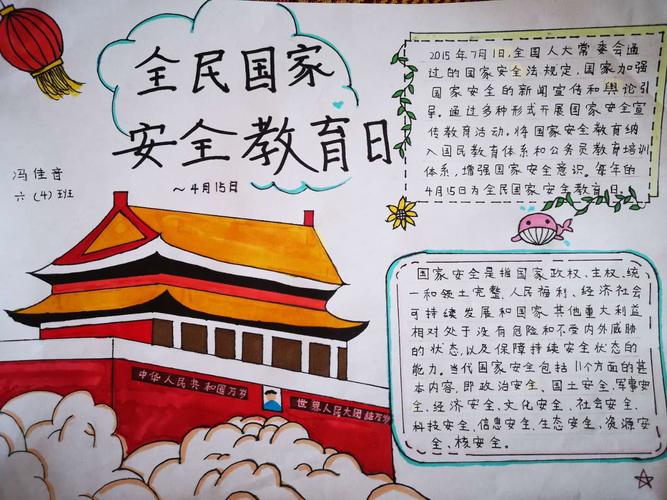 全民国家
安全教育日
~4月15日
冯佳音
六(4)班
2015年7月1日,全国人大常委会通
过的国家安全法规定,国家加强
国家安全的新闻宣传和舆论引
导。通过多种形式开展国家安全宣
传教育活动。将国家安全教育纳
入国民教育体系和公务员教育培训
体系,增强国家安全意识。每年的
4月15日为全民国家安全教育日。
国家安全是指国家政权、主权、统
一和领土完整、人民福利、经济社会
可持续发展和国家其他重大利益
相对处于没有危险和不受内外威胁
的状态,以及保障持续安全状态的
能力。当代国家安全包括11个方面的基
本内容,即政治安全、国土安全、军事安
全、经济安全、文化安全、社会安全、
科技安全、信息安全、生态安全、资源安
全、核安全。
中华人民共和国万岁
世界人民大团结万岁